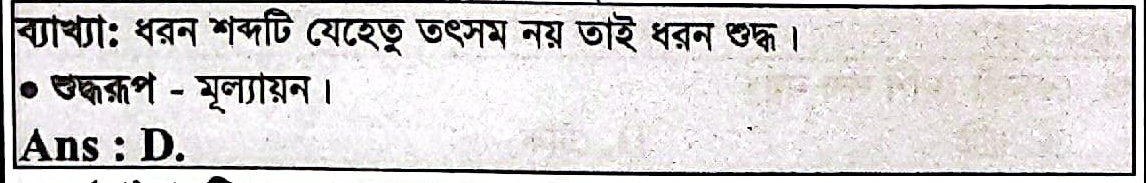 ব্যাখ্যা: ধরন শব্দটি যেহেতু তৎসম নয় তাই ধরন শুদ্ধ।
● শুদ্ধরূপ - মূল্যায়ন।
Ans : D.